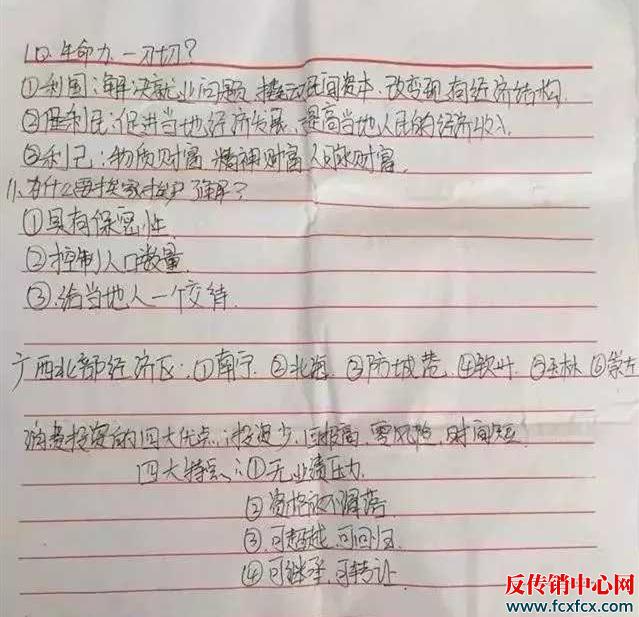 10、生命力、一刀切?
①利国:解决就业问题、拉动民间资本、改变现有经济结构.
②利民:促进当地经济发展、提高当地人民的经济收入
③利己:物质财富 精神财富 人际财富.
11、为什么要挨家挨户了解?
①具有保密性.
②控制人口数量.
③.给当地人一个交待.
广西北部经济区:①南宁 ②北海 ③防城港 ④钦州 ⑤玉林 ⑥崇左
消费投资的四大优点:投资少、回报高、零风险、时间短.
四大特点:①无业绩压力.
②资格永不滑落
③.可超越、可回归.
④可继承、可转让.
反传销中心网
www.fcxfcx.com